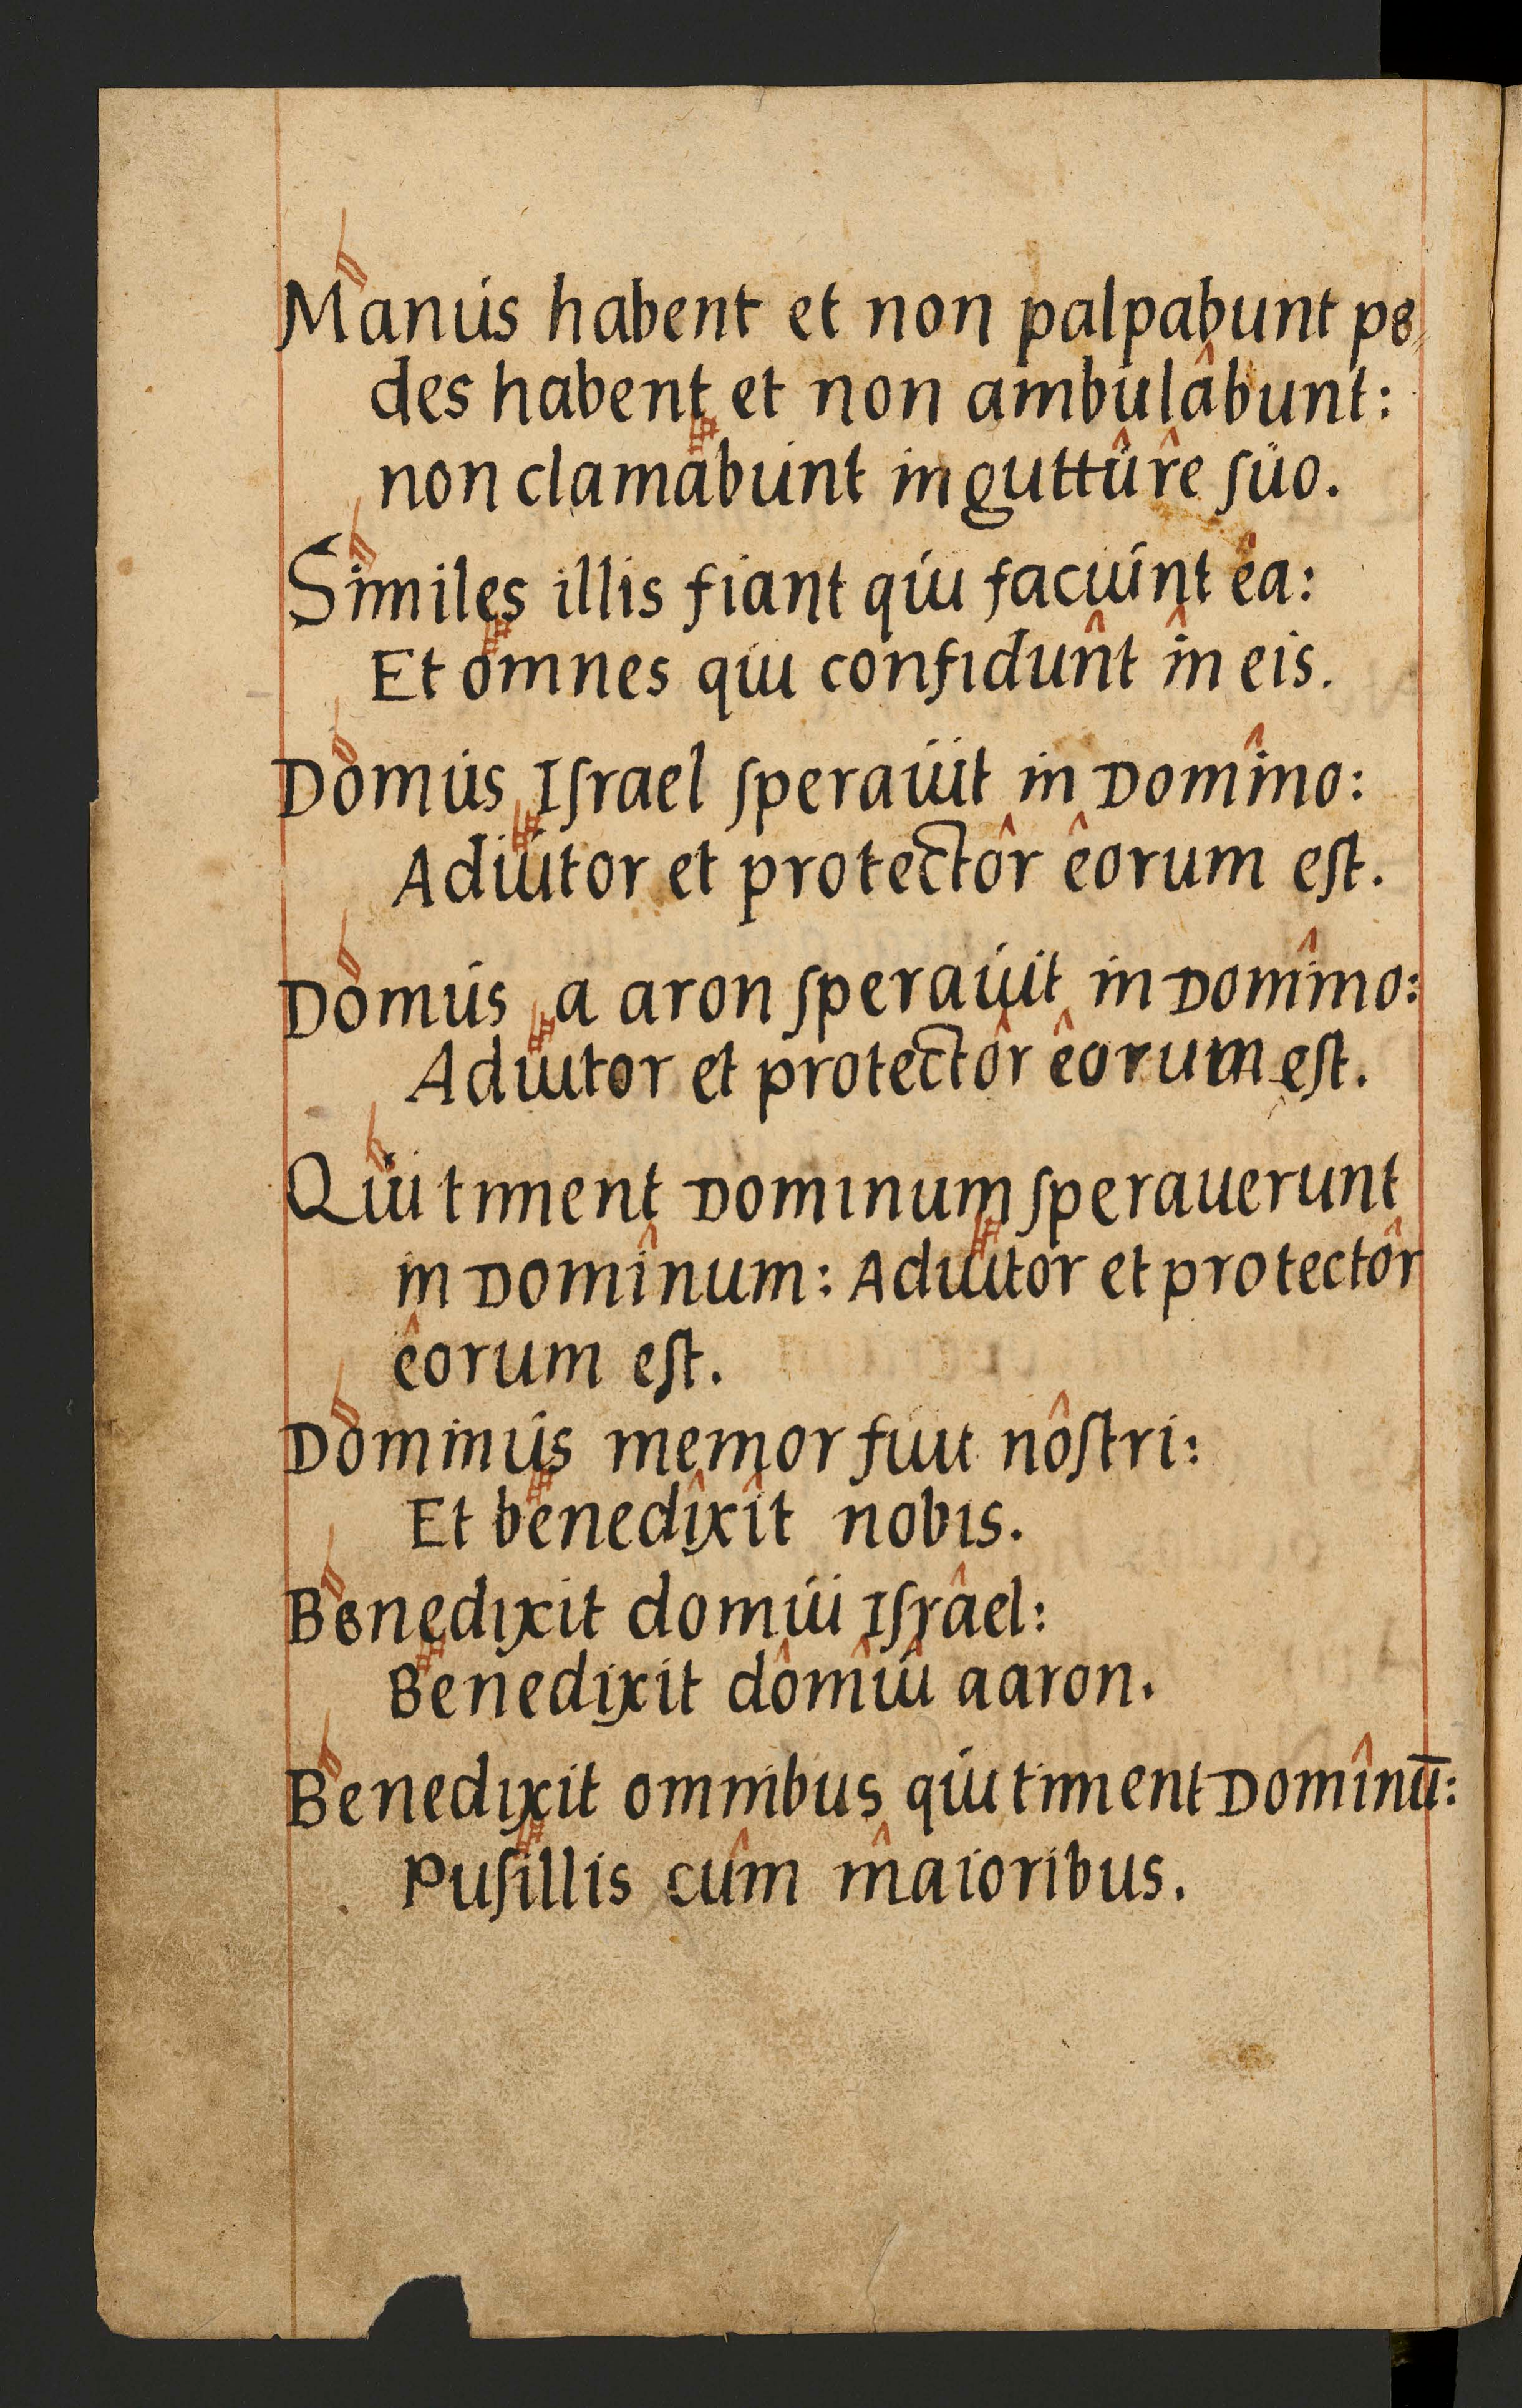 Manus habent et non palpabunt pe,
des habent et non ambulâbunt:
non clamabunt in guttûrê ſuo.
Similes illis fiant qui faciunt êa:
Et omnes qui confidun̂t în eis.
Domus Iſrael ſperauit in Domîno:
Adiutor et protectôr êorum eſt.
Domus a aron ſperauit in Domîno:
Adiutor et protectôr êorum eſt.
Qui timent Dominum ſperauerunt
in Domînum: Adiutor et protectôr
êorum eſt.
Dominus memor fuit nôſtri:
Et benedîxît nobis.
Benedixit domui Iſrâel:
Benedixit dômûî aaron.
Benedixit omnibus qui timent Domînū:
Puſillis cûm m̂aioribus.